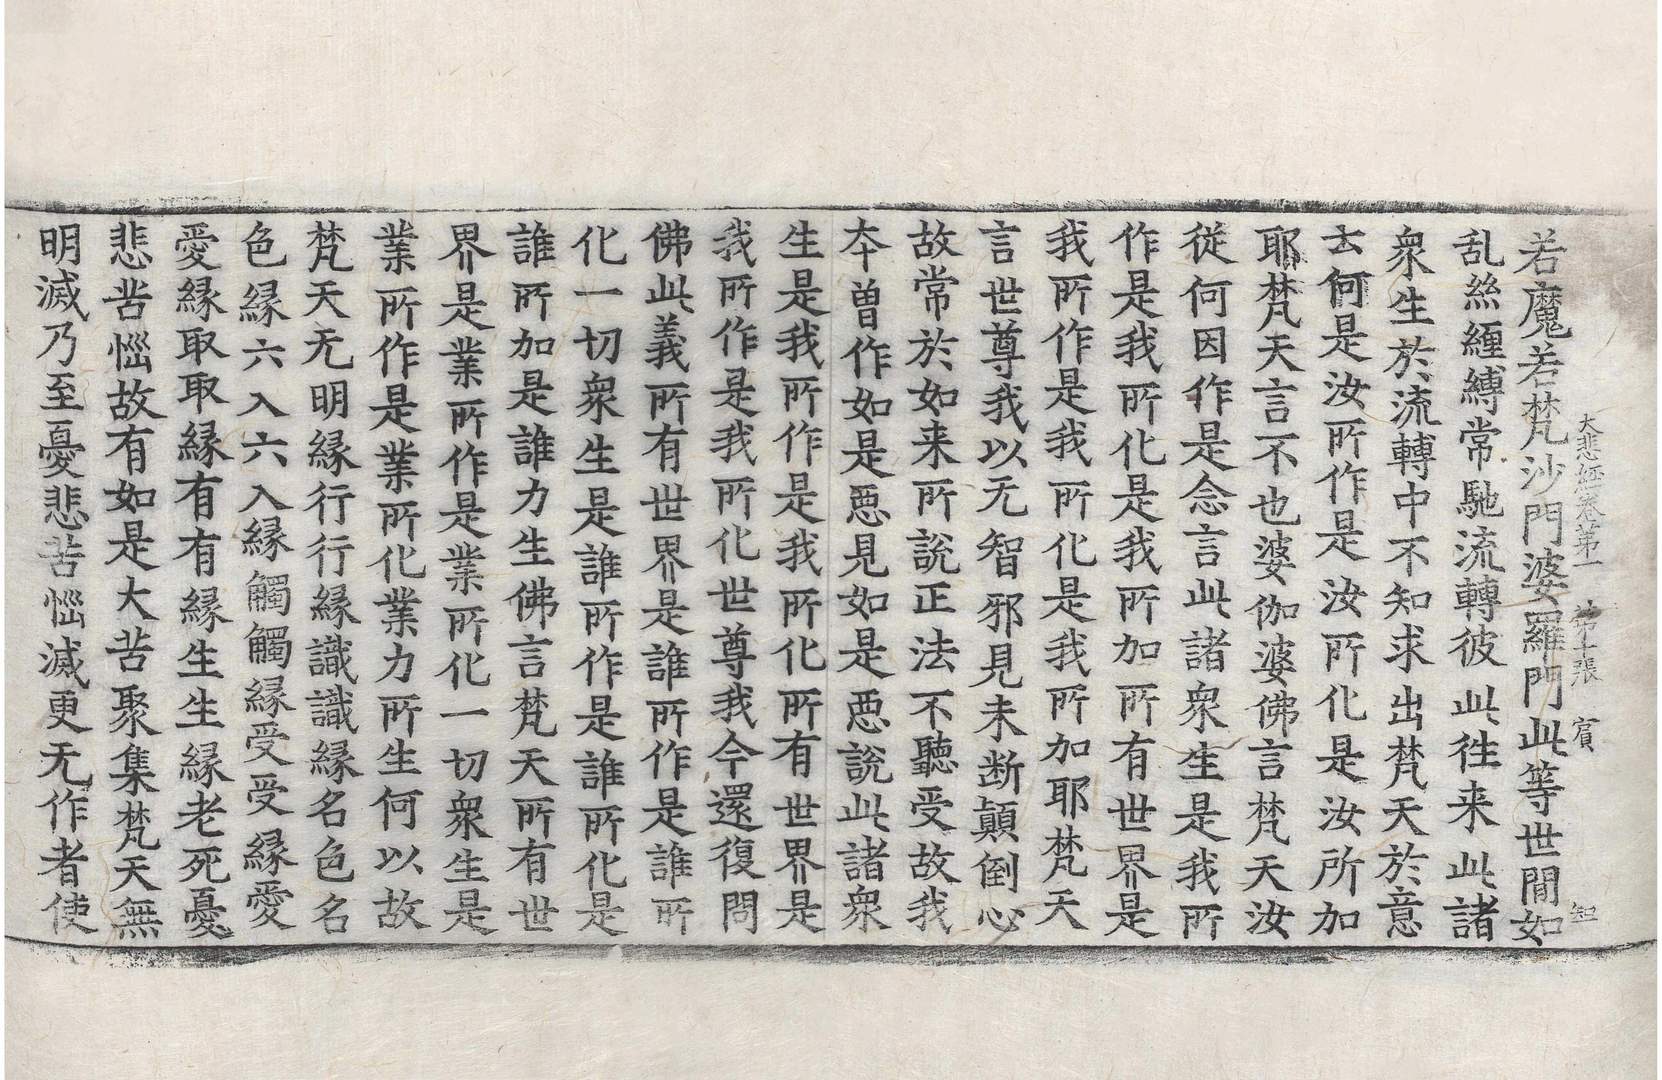 大悲經卷第一 第十張 賓
若魔若梵沙門婆羅門此等世間如
乱絲纏縛常馳流轉彼此往来此諸
衆生於流轉中不知求出梵天於意
云何是汝所作是汝所化是汝所加
耶梵天言不也婆伽婆佛言梵天汝
從何因作是念言此諸衆生是我所
作是我所化是我所加所有世界是
我所作是我所化是我所加耶梵天
言世尊我以无智邪見未断顛倒心
故常於如来所說正法不聽受故我
夲曽作如是悪見如是悪說此諸衆
生是我所作是我所化所有世界是
我所作是我所化世尊我今還復問
佛此義所有世界是誰所作是誰所
化一切衆生是誰所作是誰所化是
誰所加是誰力生佛言梵天所有世
界是業所作是業所化一切衆生是
業所作是業所化業力所生何以故
梵天无明縁行行縁識識縁名色名
色縁六入六入縁觸觸縁受受縁愛
愛縁取取縁有有縁生生縁老死憂
悲苦惱故有如是大苦聚集梵天無
明滅乃至憂悲苦惱滅更无作者使